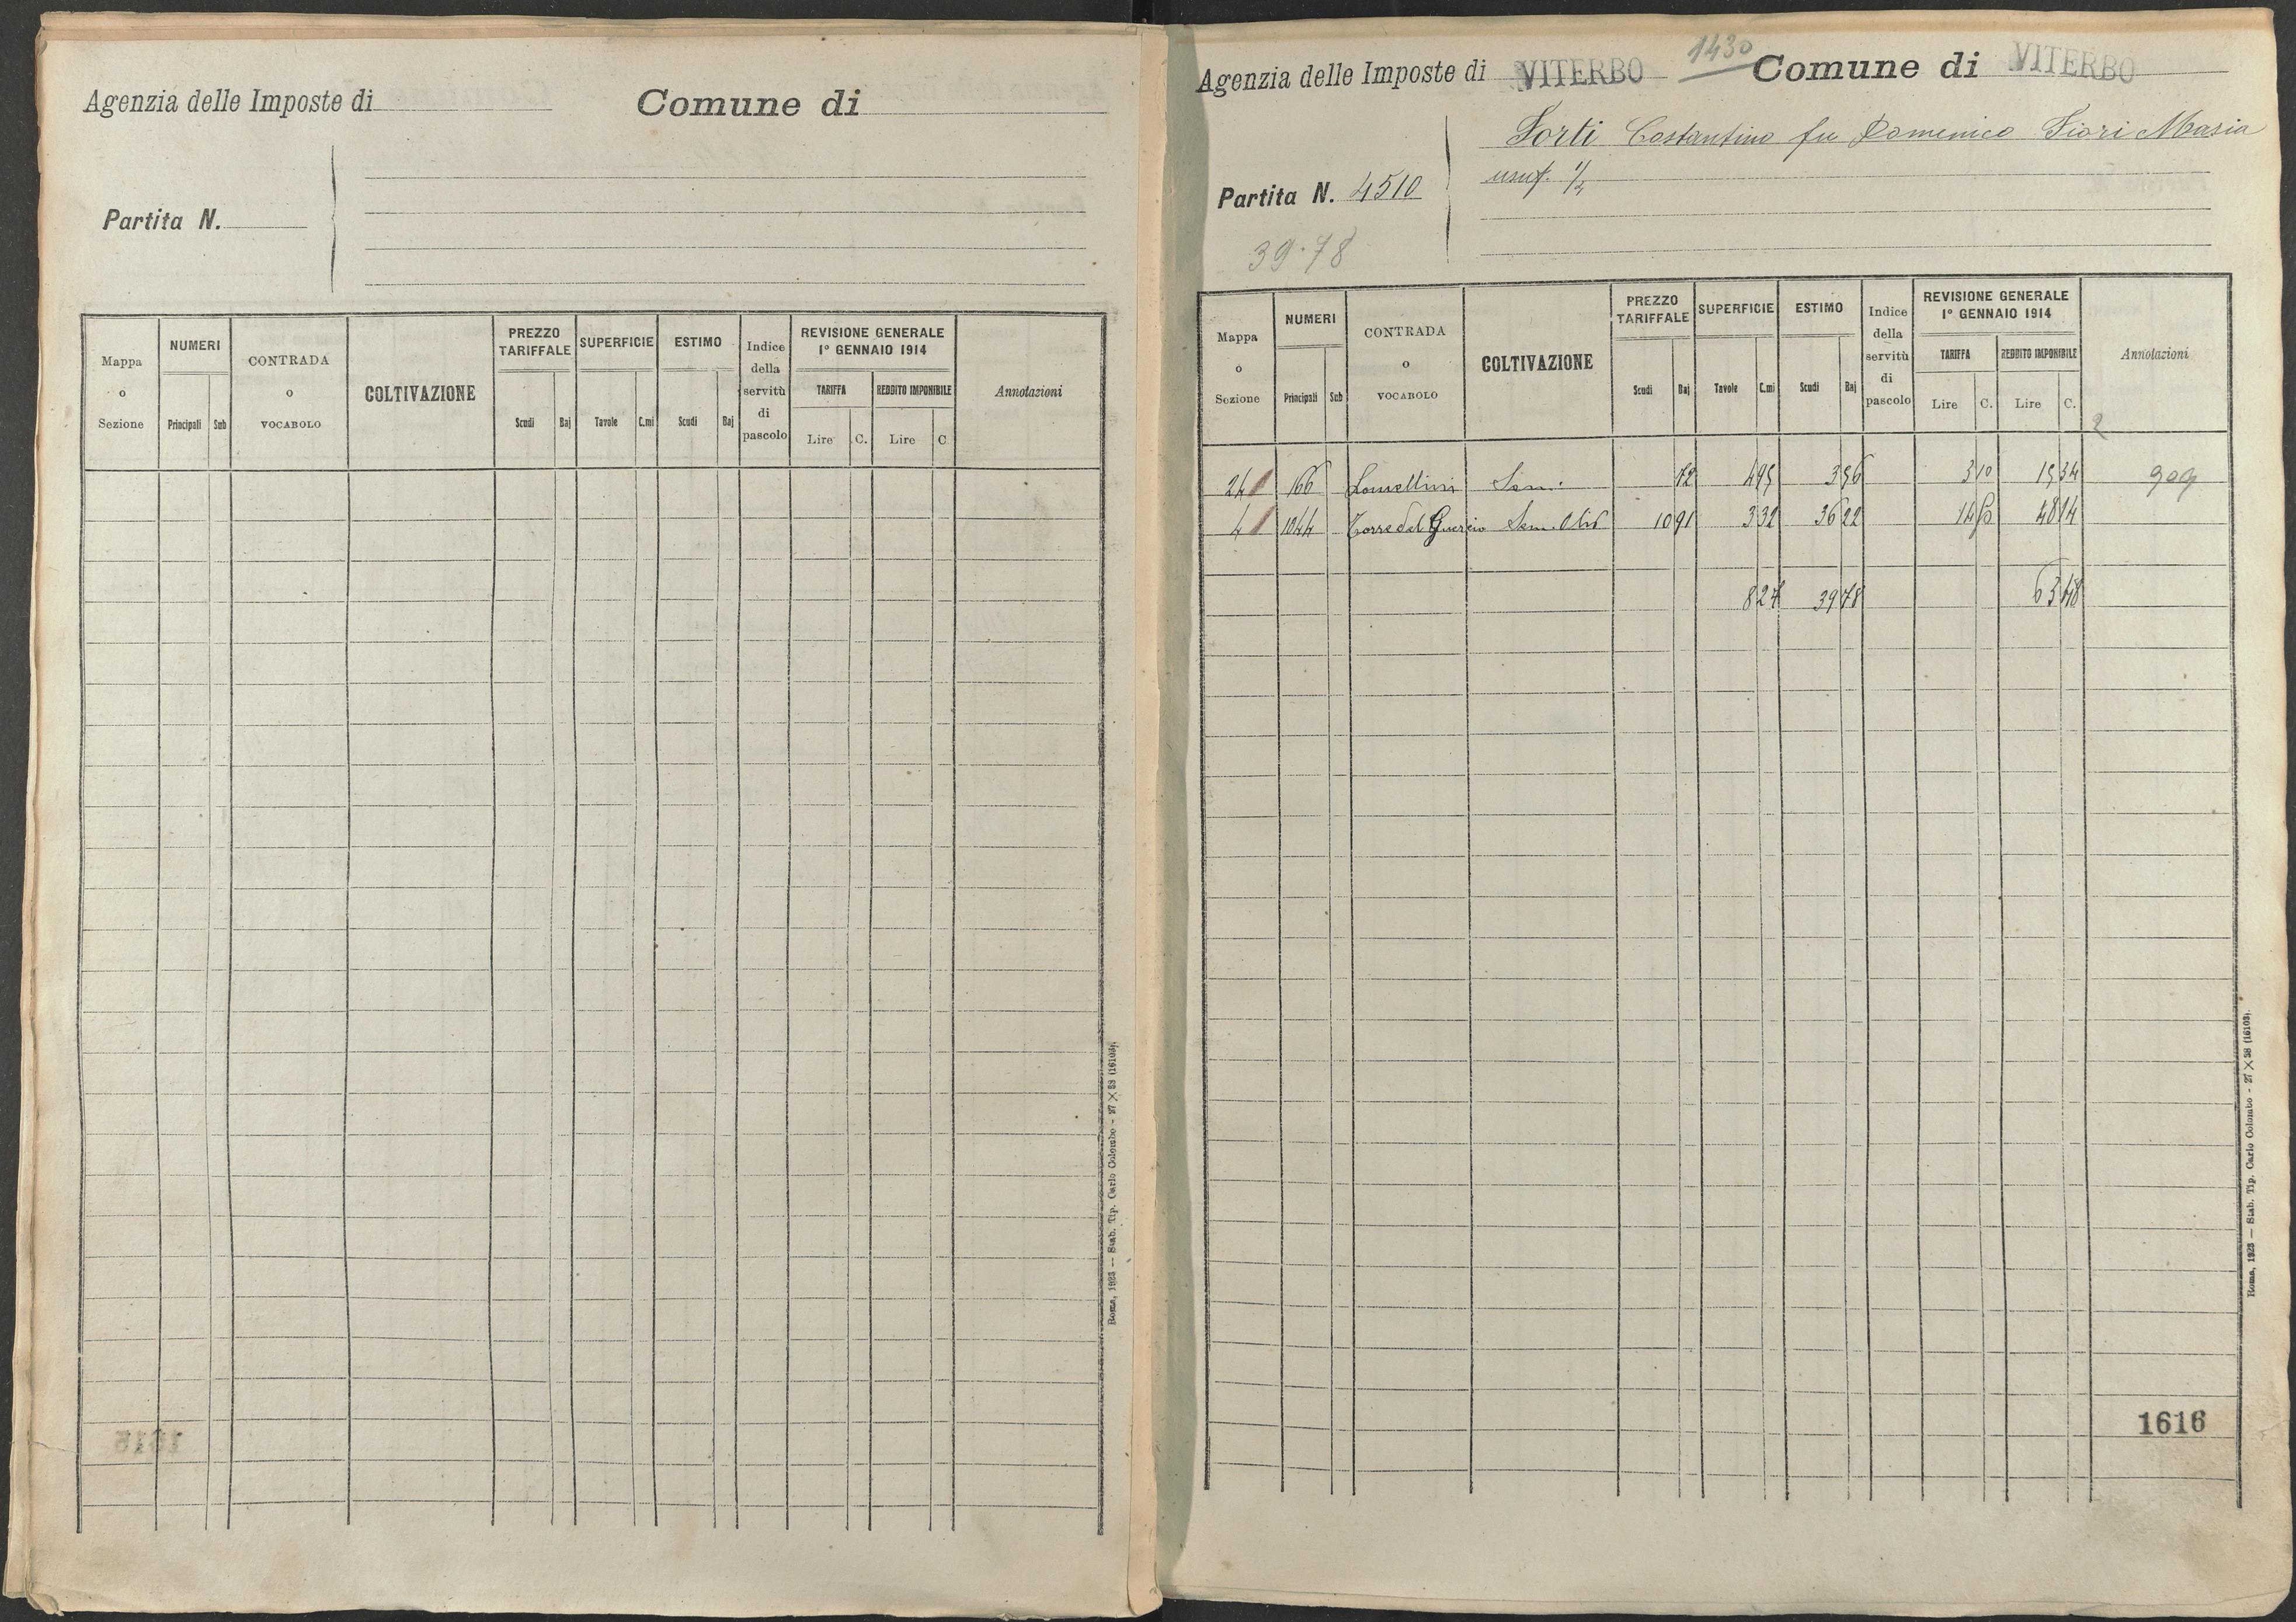 Agenzia delle Imposte di
Comune di
Partita N.
Mappa o Sezione
NUMERI
Principali Sub
CONTRADA o VOCABOLO
COLTIVAZIONE
PREZZO TARIFFALE
Scudi Baj
SUPERFICIE
Tavole C.mi
ESTIMO
Scudi Baj
Indice della servitù di pascolo
REVISIONE GENERALE
1° GENNAIO 1914
TARIFFA
Lire C.
REDDITO IMPONIBILE
Lire C.
Annotazioni
Roma, 1923 — Stab. Tip. Carlo Colombo - 27 X 38 (16103).
1615
1430
Agenzia delle Imposte di VITERBO Comune di VITERBO
Costantino fu Domenico Fiori Maria
usuf. 1/2
Partita N. 4510
39.78
Mappa o Sezione
NUMERI
Principali Sub
CONTRADA o VOCABOLO
COLTIVAZIONE
PREZZO TARIFFALE
Scudi Baj
SUPERFICIE
Tavole C.mi
ESTIMO
Scudi Baj
Indice della servitù di pascolo
REVISIONE GENERALE
1° GENNAIO 1914
TARIFFA
Lire C.
REDDITO IMPONIBILE
Lire C.
Annotazioni
2
24 166 Sem. 72 495 3 56 3 10 15 34 909
4 1044 Torre del Guercio Sem. Oliv 10 91 3 32 36 22 48 14
8 27 39 78 63 48
1616
Roma, 1923 — Stab. Tip. Carlo Colombo - 27 X 38 (16103).